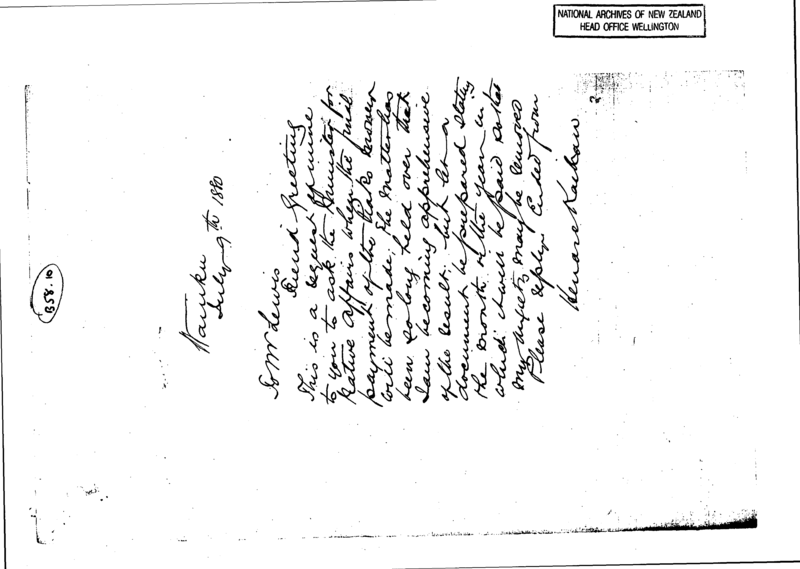 NATIONAL ARCHIVES OF NEW ZEALAND
HEAD OFFICE WELLINGTON
B58.10
Waiuku
July 9th 1890
To Mr Lewis
Friend Greeting
This is a request of mine
to you to ask the Minister for
Native Affairs when the final
payment of the Piako
will be made. The matter has
been so long held over that
I am becoming apprehensive
of the result. but let a
document be prepared stating
the month of the year in
which it will be paid so that
my anxiety may be removed
Please reply. Ended from
Kaihau